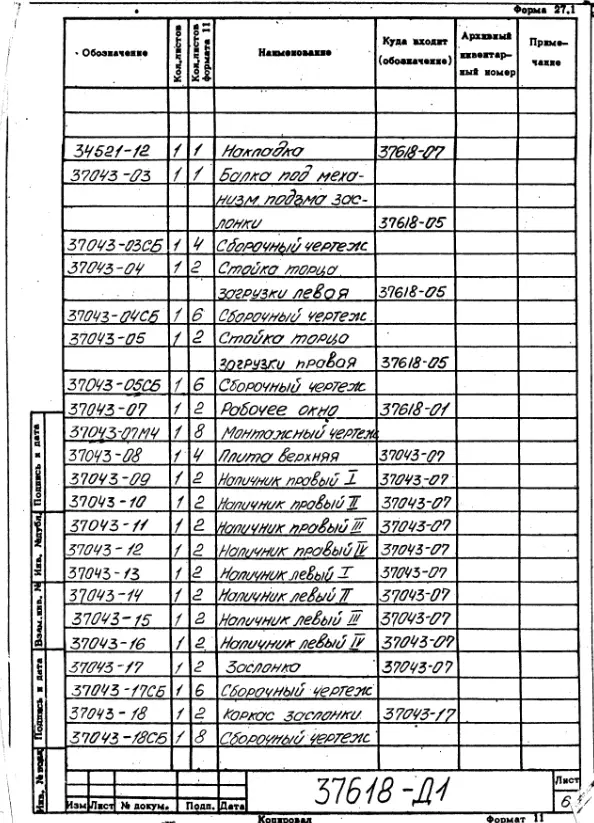 Форма 27.1
Обозначение Кол. листов Кол. листов формата 11 Наименование Куда входит (обозначение) Архивный инвентар- ный номер Приме- чание
34521-12 1 1 Накладка 37618-07
37043-03 1 1 Балка под меха-
низм подъма зас-
лонки 37618-05
37043-03СБ 1 4 Сборочный чертеж
37043-04 1 2 Стойка торца
загрузки левая 37618-05
37043-04СБ 1 6 Сборочный чертеж
37043-05 1 2 Стойка торца
загрузки правая 37618-05
37043-05СБ 1 6 Сборочный чертеж
37043-07 1 2 Рабочее окно 37618-01
37043-07МЧ 1 8 Монтажный чертеж
37043-08 1 4 Плита верхняя 37043-07
37043-09 1 2 Наличник правый I 37043-07
37043-10 1 2 Наличник правый II 37043-07
37043-11 1 2 Наличник правый III 37043-07
37043-12 1 2 Наличник правый IV 37043-07
37043-13 1 2 Наличник левый I 37043-07
37043-14 1 2 Наличник левый II 37043-07
37043-15 1 2 Наличник левый III 37043-07
37043-16 1 2 Наличник левый IV 37043-07
37043-17 1 2 Заслонка 37043-07
37043-17СБ 1 6 Сборочный чертеж
37043-18 1 2 Каркас заслонки 37043-17
37043-18СБ 1 8 Сборочный чертеж
Подпись и дата
Инв. №дубл.
Взам. инв. №
Подпись и дата
Инв. № подл.
37618-Д1
Лист
6
Изм Лист № докум. Подп. Дата
Копировал Формат 11